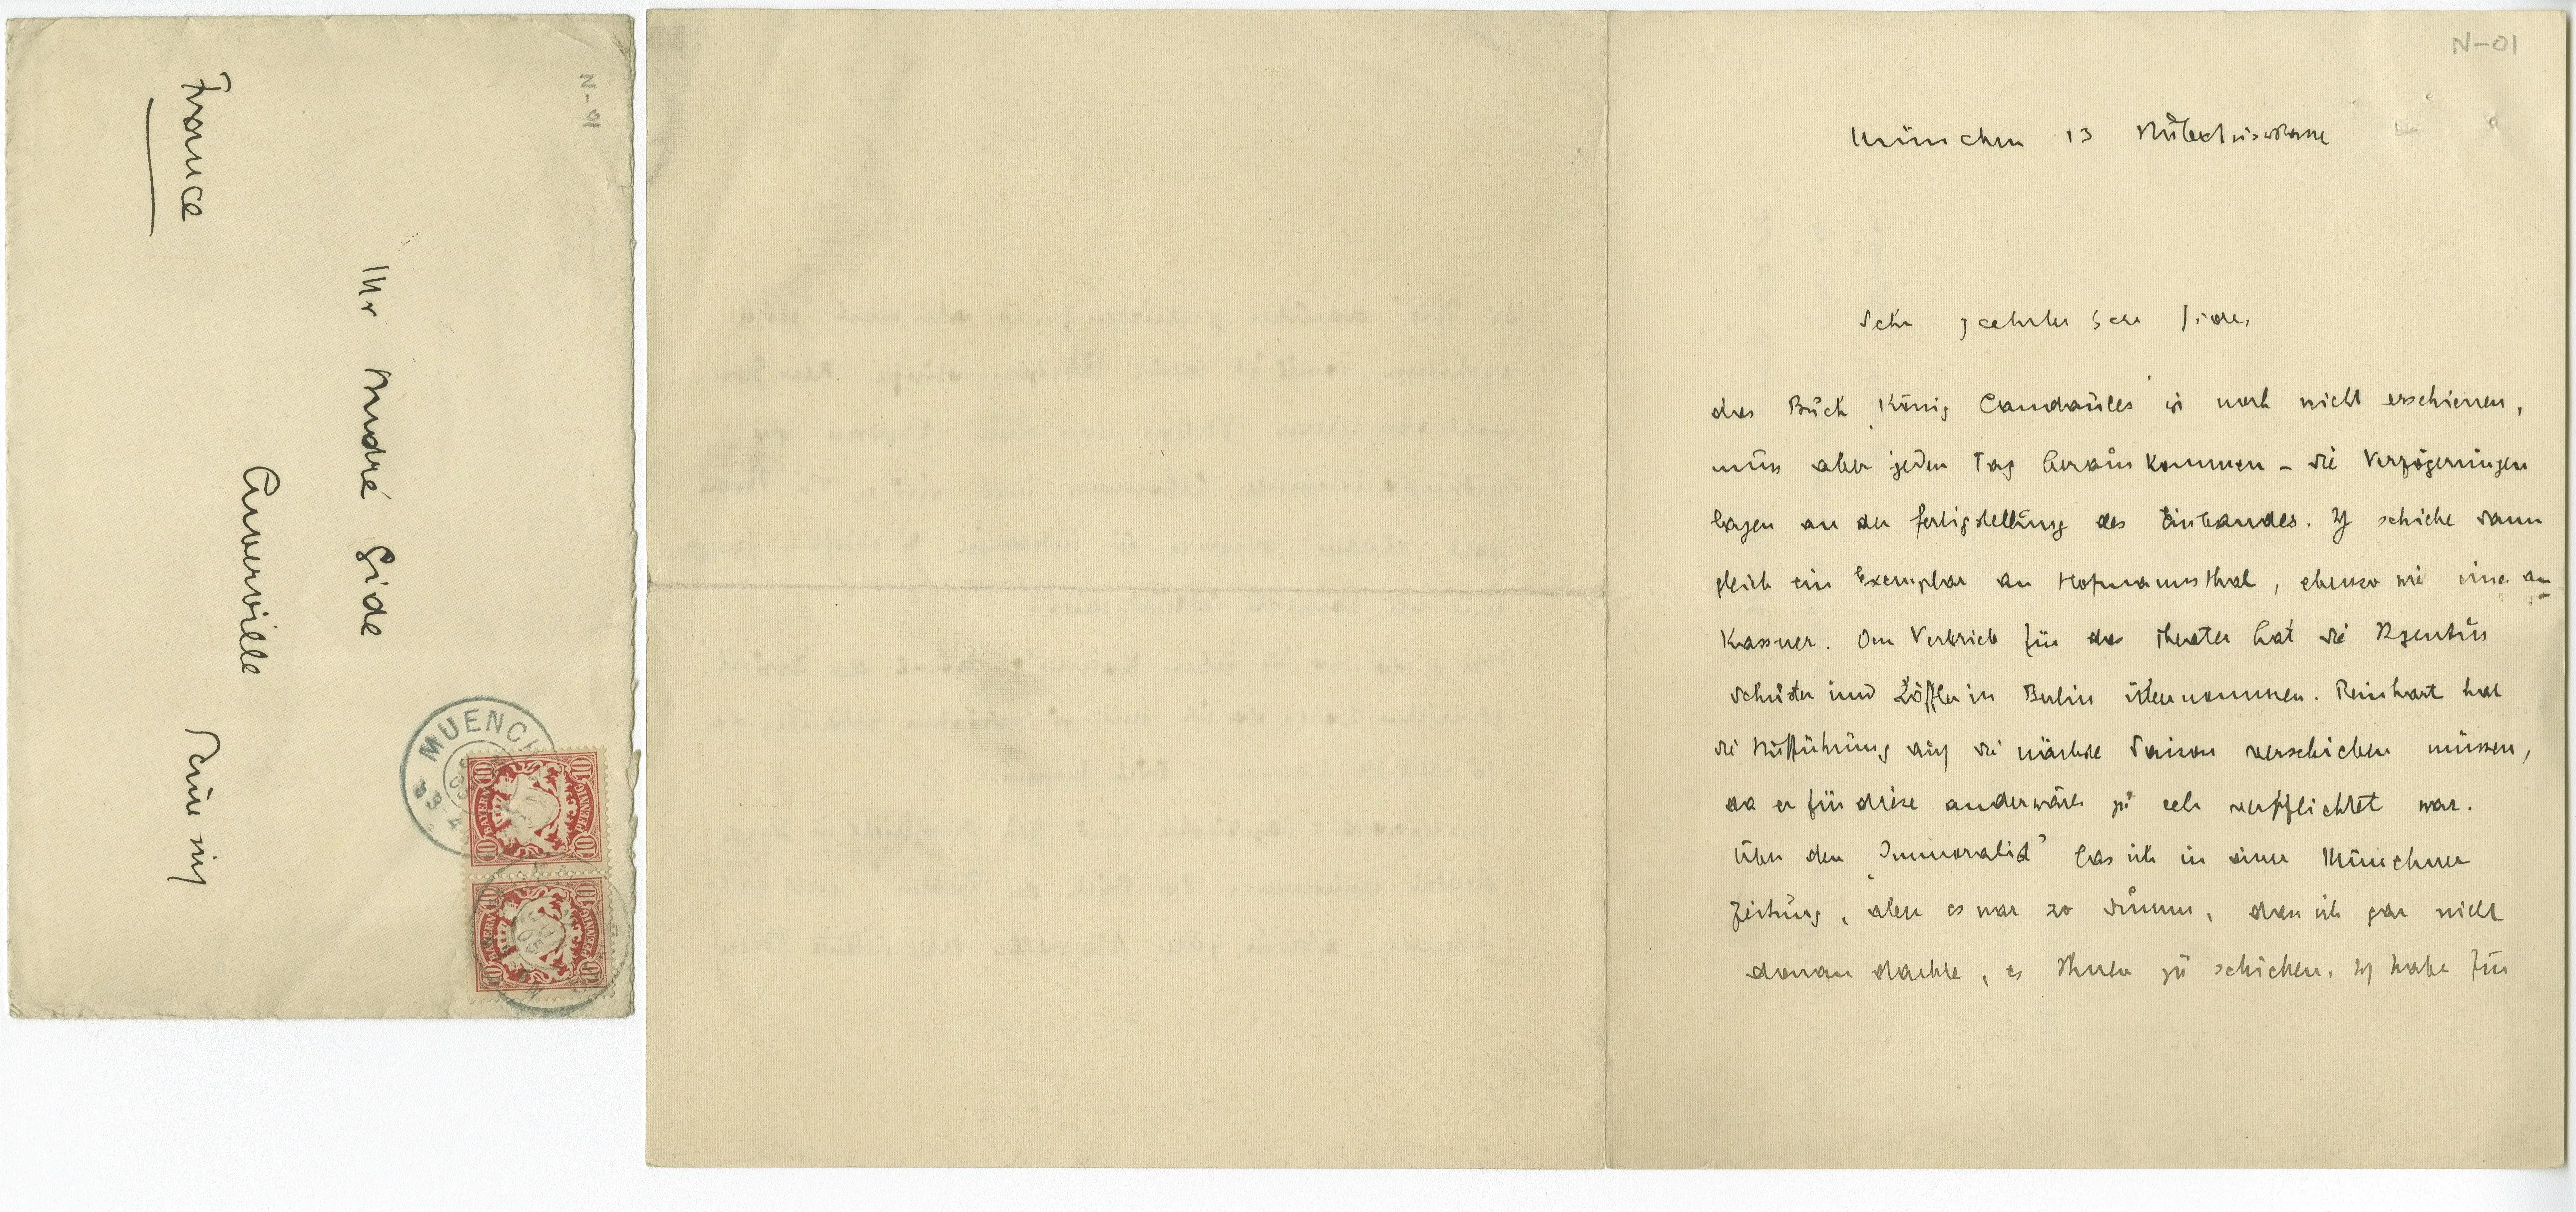 N-01
France
Mr André Gide
Cuverville
Seine inf
MUENCH
BAYERN
10
PFENNIG
BAYERN
10
PFENNIG
N-01
München 13
Sehr geehrter Herr Gide,
das Buch „König Candaules" ist noch nicht erschienen,
muss aber jeden Tag herauskommen – die Verzögerungen
lagen an der Fertigstellung des Einbandes. Ich schicke dann
gleich ein Exemplar an Hofmannsthal, ebenso wie eines an
Kassner. Den Vertrieb für das Theater hat die Agentur
Schuster und Löffler in Berlin übernommen. Reinhart hat
die Aufführung auf die nächste Saison verschieben müssen,
da er für diese anderwärts zu sehr verpflichtet war.
Über den „Immoralist" las ich in einer Münchner
Zeitung, aber es war so dumm, dass ich gar nicht
daran dachte, es Ihnen zu schicken. Ich habe für